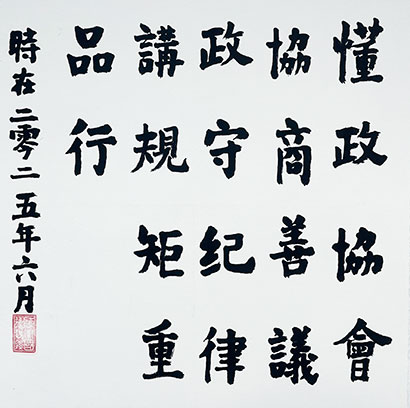 懂政協會
協商善議
政守紀律
講規矩重
品行
時在二零二五年六月